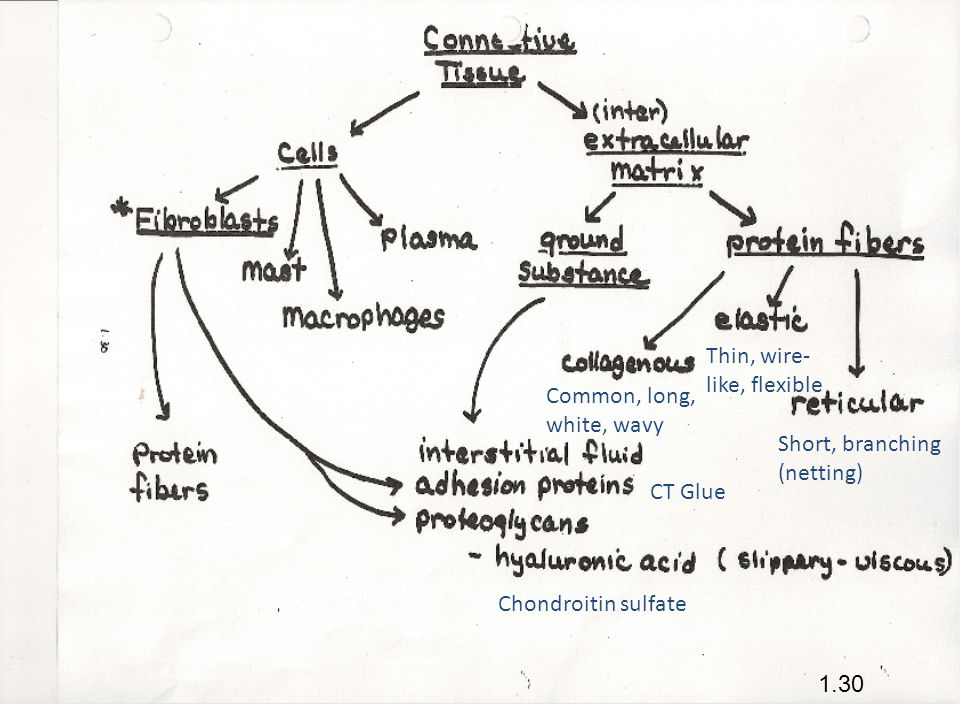 Connective
Tissue
(inter)
extracellular
matrix
Cells
*Fibroblasts
mast
macrophages
plasma
ground
substance
protein fibers
collagenous
Common, long,
white, wavy
elastic
Thin, wire-
like, flexible
reticular
Short, branching
(netting)
Protein
fibers
interstitial fluid
adhesion proteins
CT Glue
proteoglycans
- hyaluronic acid (slippery-viscous)
Chondroitin sulfate
1.30
1.30